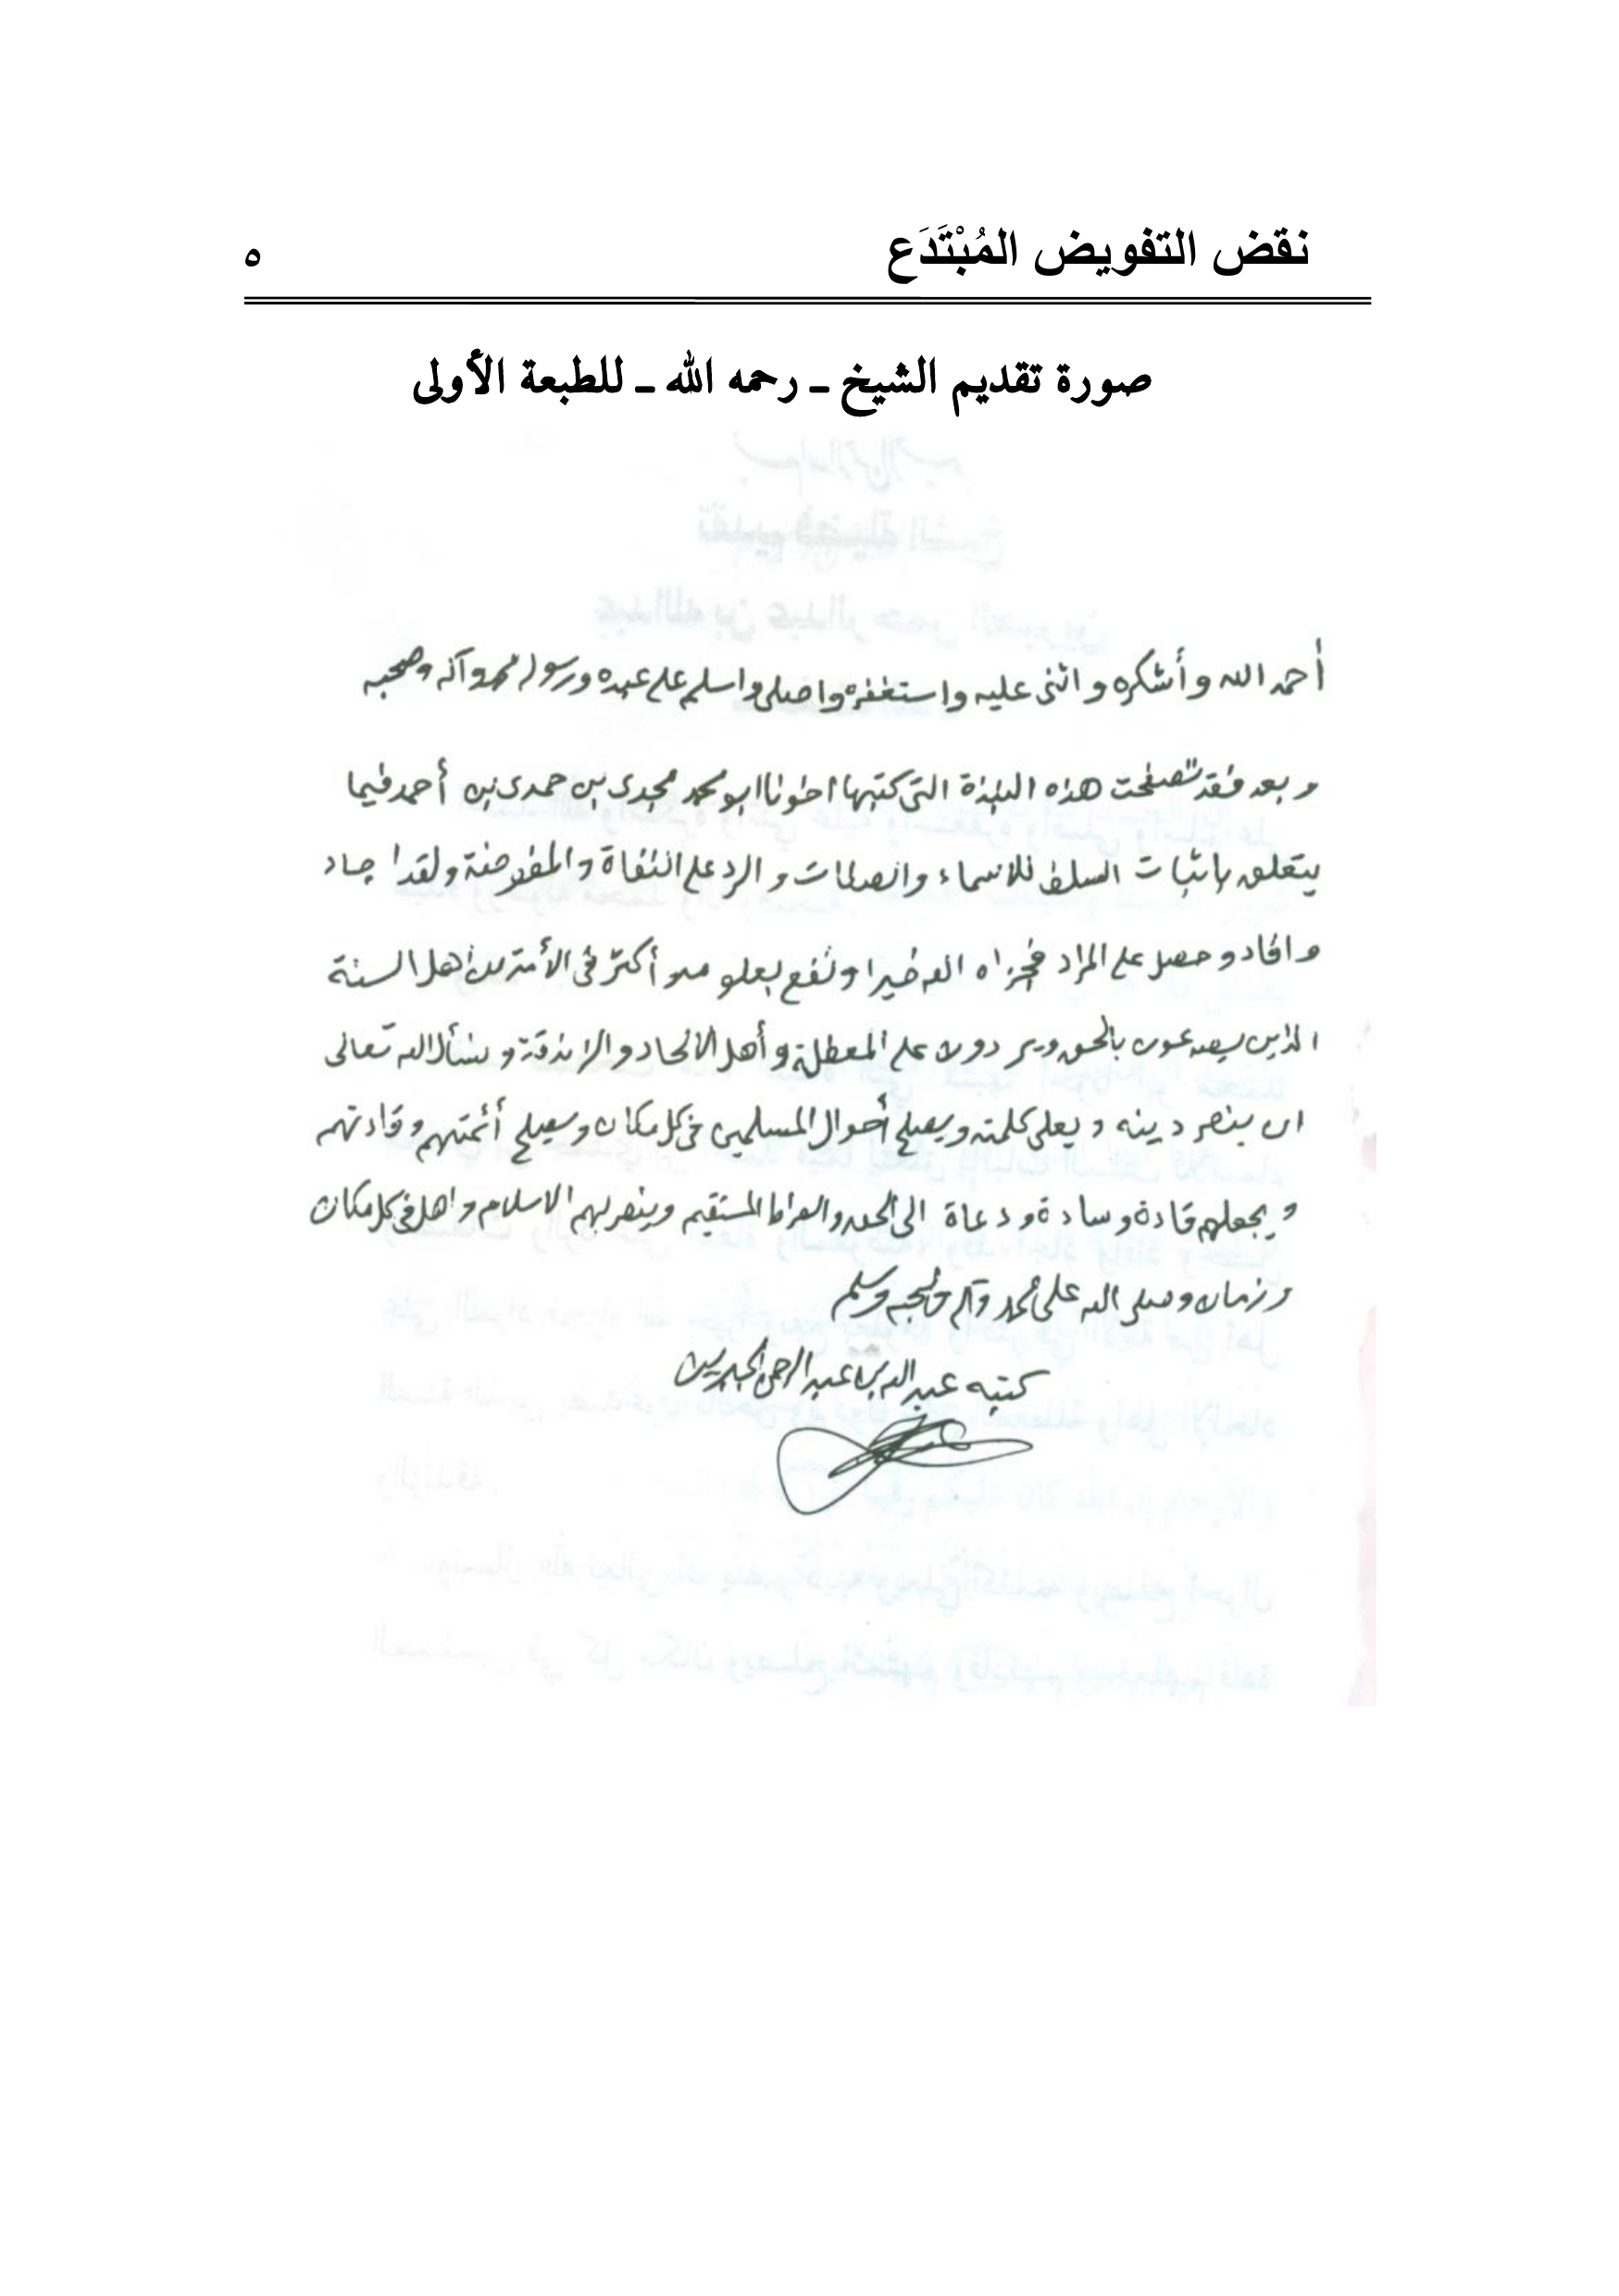 نقض التفويض المُبْتَدَع ٥
صورة تقديم الشيخ ـ رحمه الله ـ للطبعة الأولى
أحمد الله وأشكره واثنى عليه واستغفره واصلى واسلم على عبده ورسوله محمد وآله وصحبه
وبعد فقد تصفحت هذه النبذة التى كتبها اخونا ابو محمد مجدى بن حمدى بن أحمد فيما
يتعلق بإثبات السلف للاسماء والصفات والرد على النفاة والمفوضة ولقد اجاد
وافاد وحصل على المراد فجزاه الله خيرا ونفع بعلومه وأكثر فى الأمة من اهل السنة
الذين يصدعون بالحق ويردون على المعطلة وأهل الالحاد والزندقة ونسأل الله تعالى
ان ينصر دينه ويعلى كلمته ويصلح أحوال المسلمين فى كل مكان ويصلح أئمتهم وقادتهم
ويجعلهم قادة وسادة ودعاة الى الحق والصراط المستقيم وينصر بهم الاسلام واهله فى كل مكان
وزمان وصلى الله على محمد وآله وصحبه وسلم
كتبه عبد الله بن عبد الرحمن الجبرين